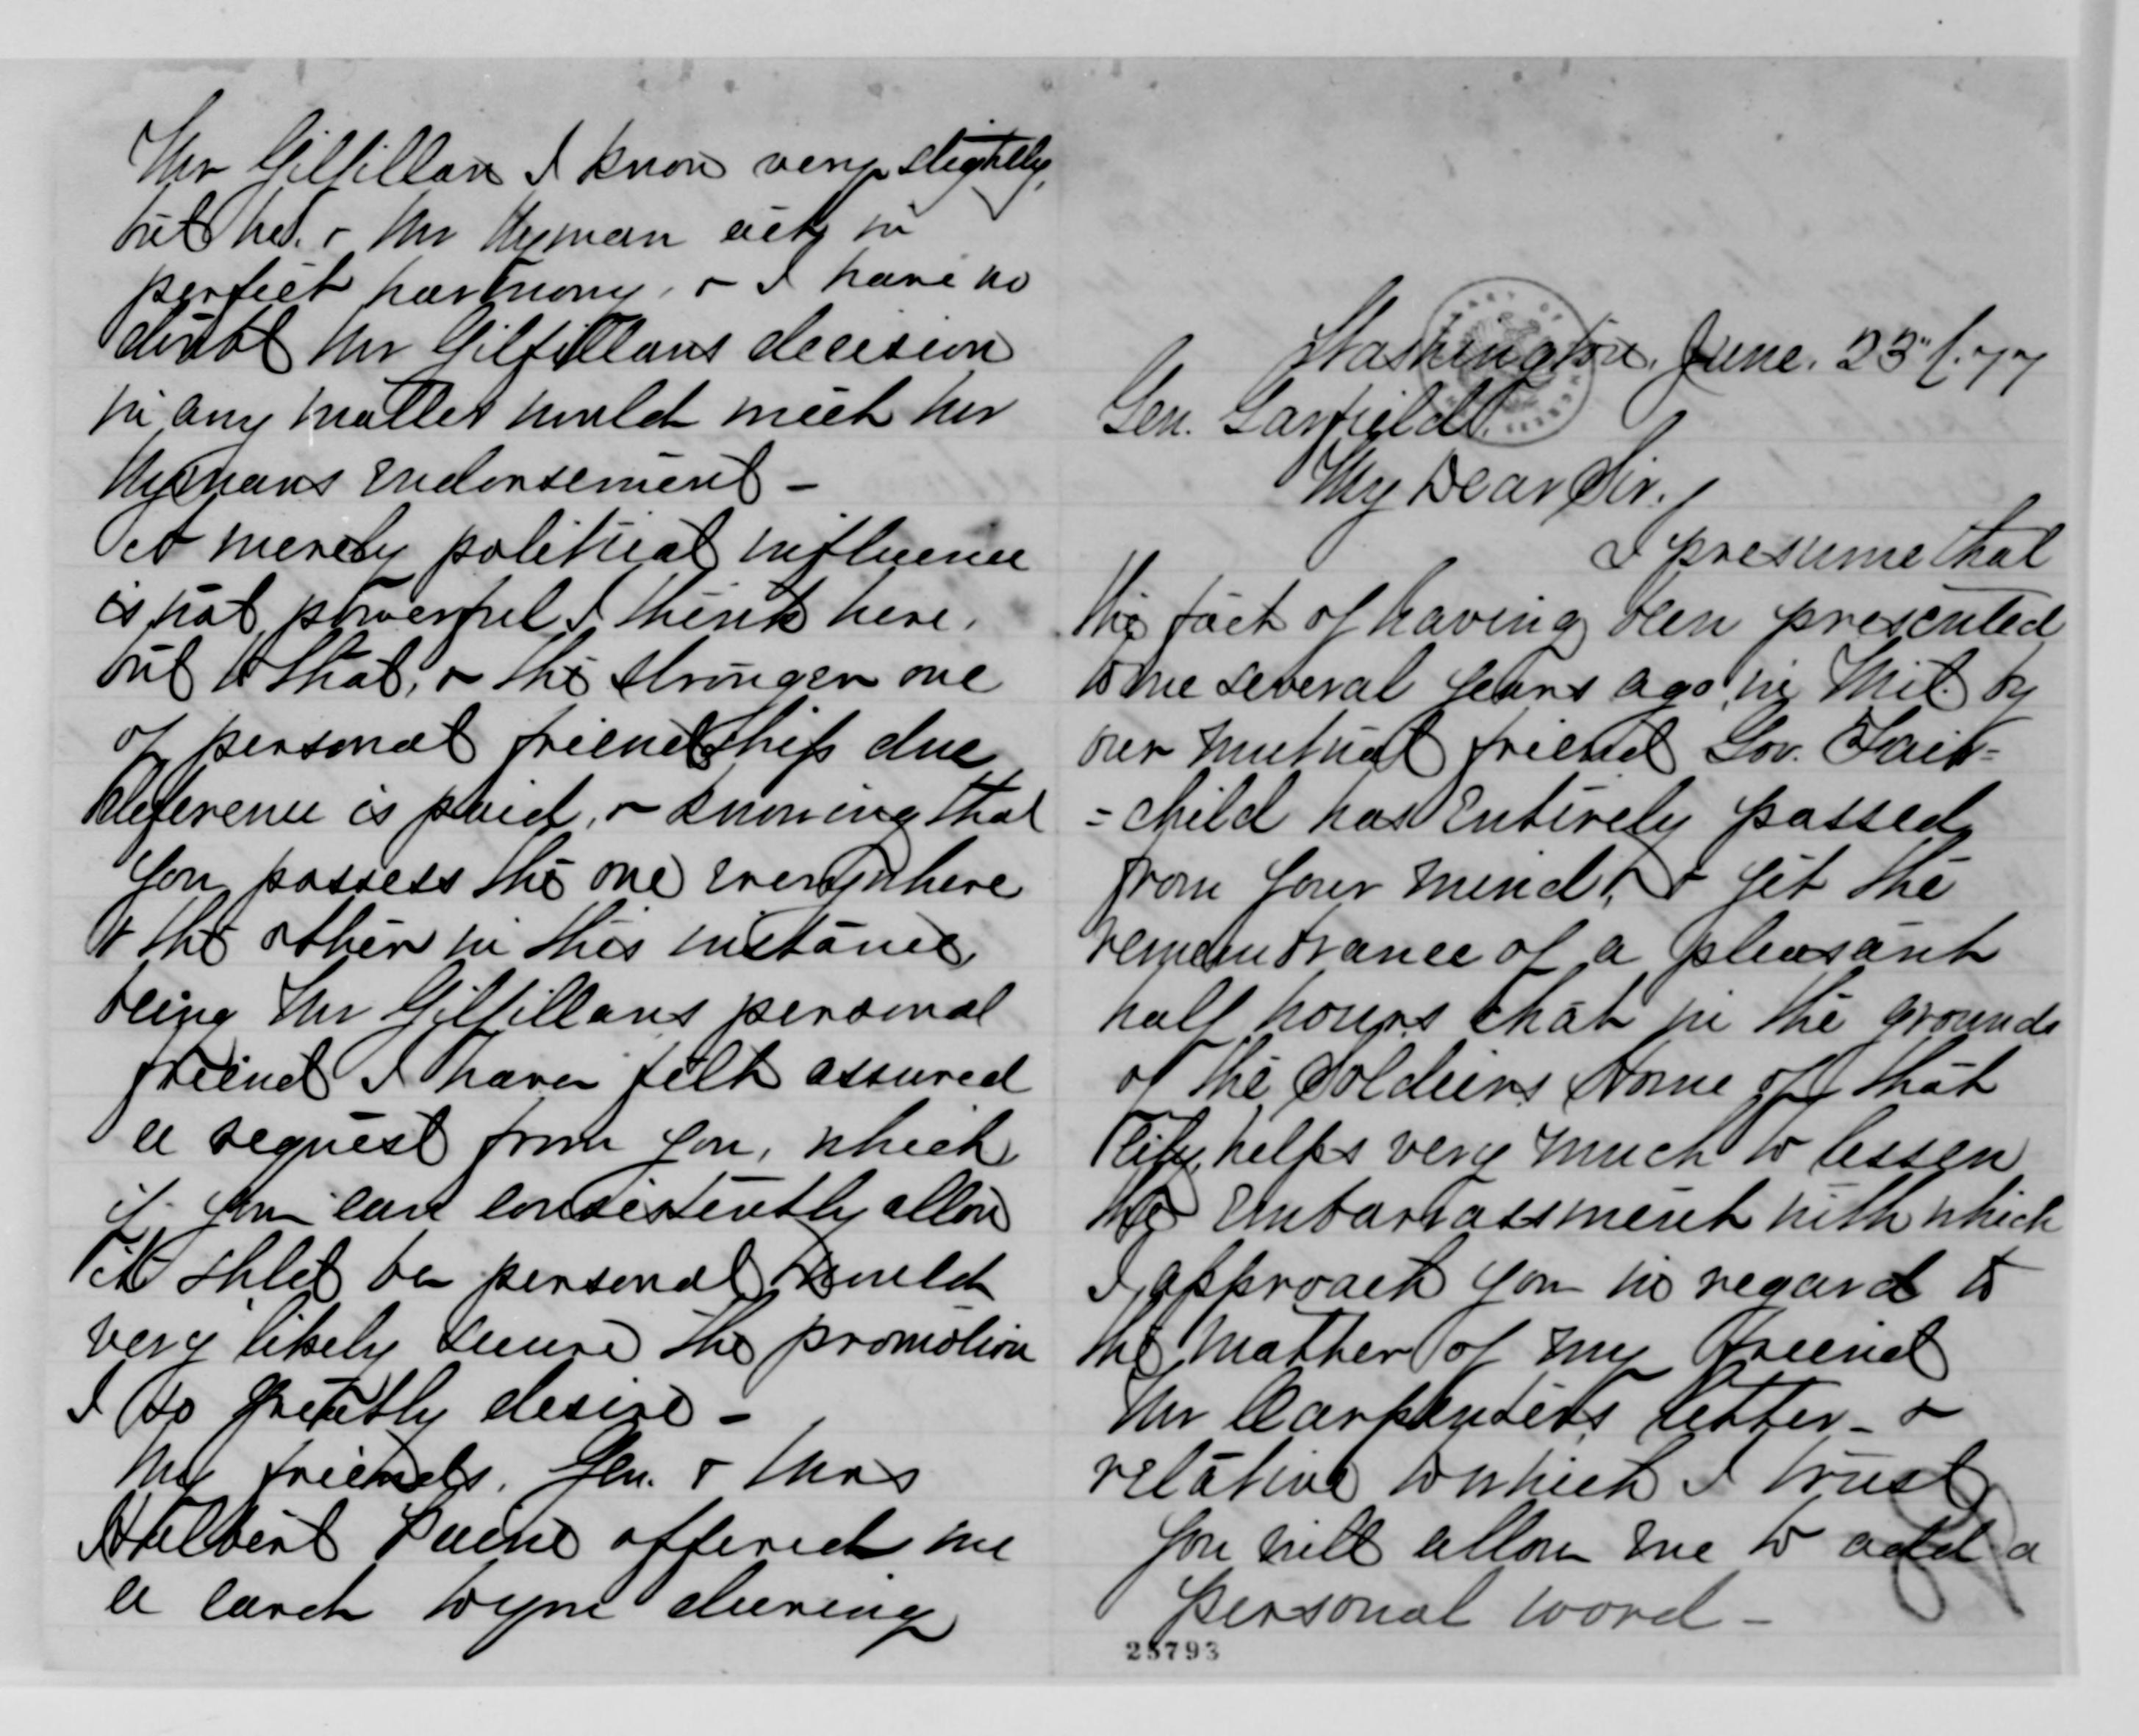 Mr Gilfillan I know very slightly,
but he. & Mr Wyman act in
perfect harmony, & I have no
doubt Mr Gilfillans decision
in any matter would meet Mr
Wymans endorsement -
To merely political influence
is not powerful I think here.
but to that, & the stronger one
of personal friendship due
deference is paid, & knowing that
you possess the one everywhere
& the other in this instance,
being Mr Gilfillans personal
friend I have felt assured
a request from you, which
if you can consistently allow
it shld be personal would
very likely secure the promotion
I so greatly desire -
My friends. Gen. & Mrs
Halbert Paine offered me
a card to you during
Washington. June. 23"/.77
Gen. Garfield.
My Dear Sir.
I presume that
the fact of having been presented
to me several years ago, in Mil. by
our mutual friend Gov. Fair=
=child has entirely passed
from your mind, & yet the
remembrance of a pleasant
half hours chat in the grounds
of the Soldiers Home of that
City, helps very much to lessen
the embarrassment with which
I approach you in regard to
the matter of my friend
Mr Carpenters letter - &
relative to which I trust
you will allow me to add a
personal word -
25793